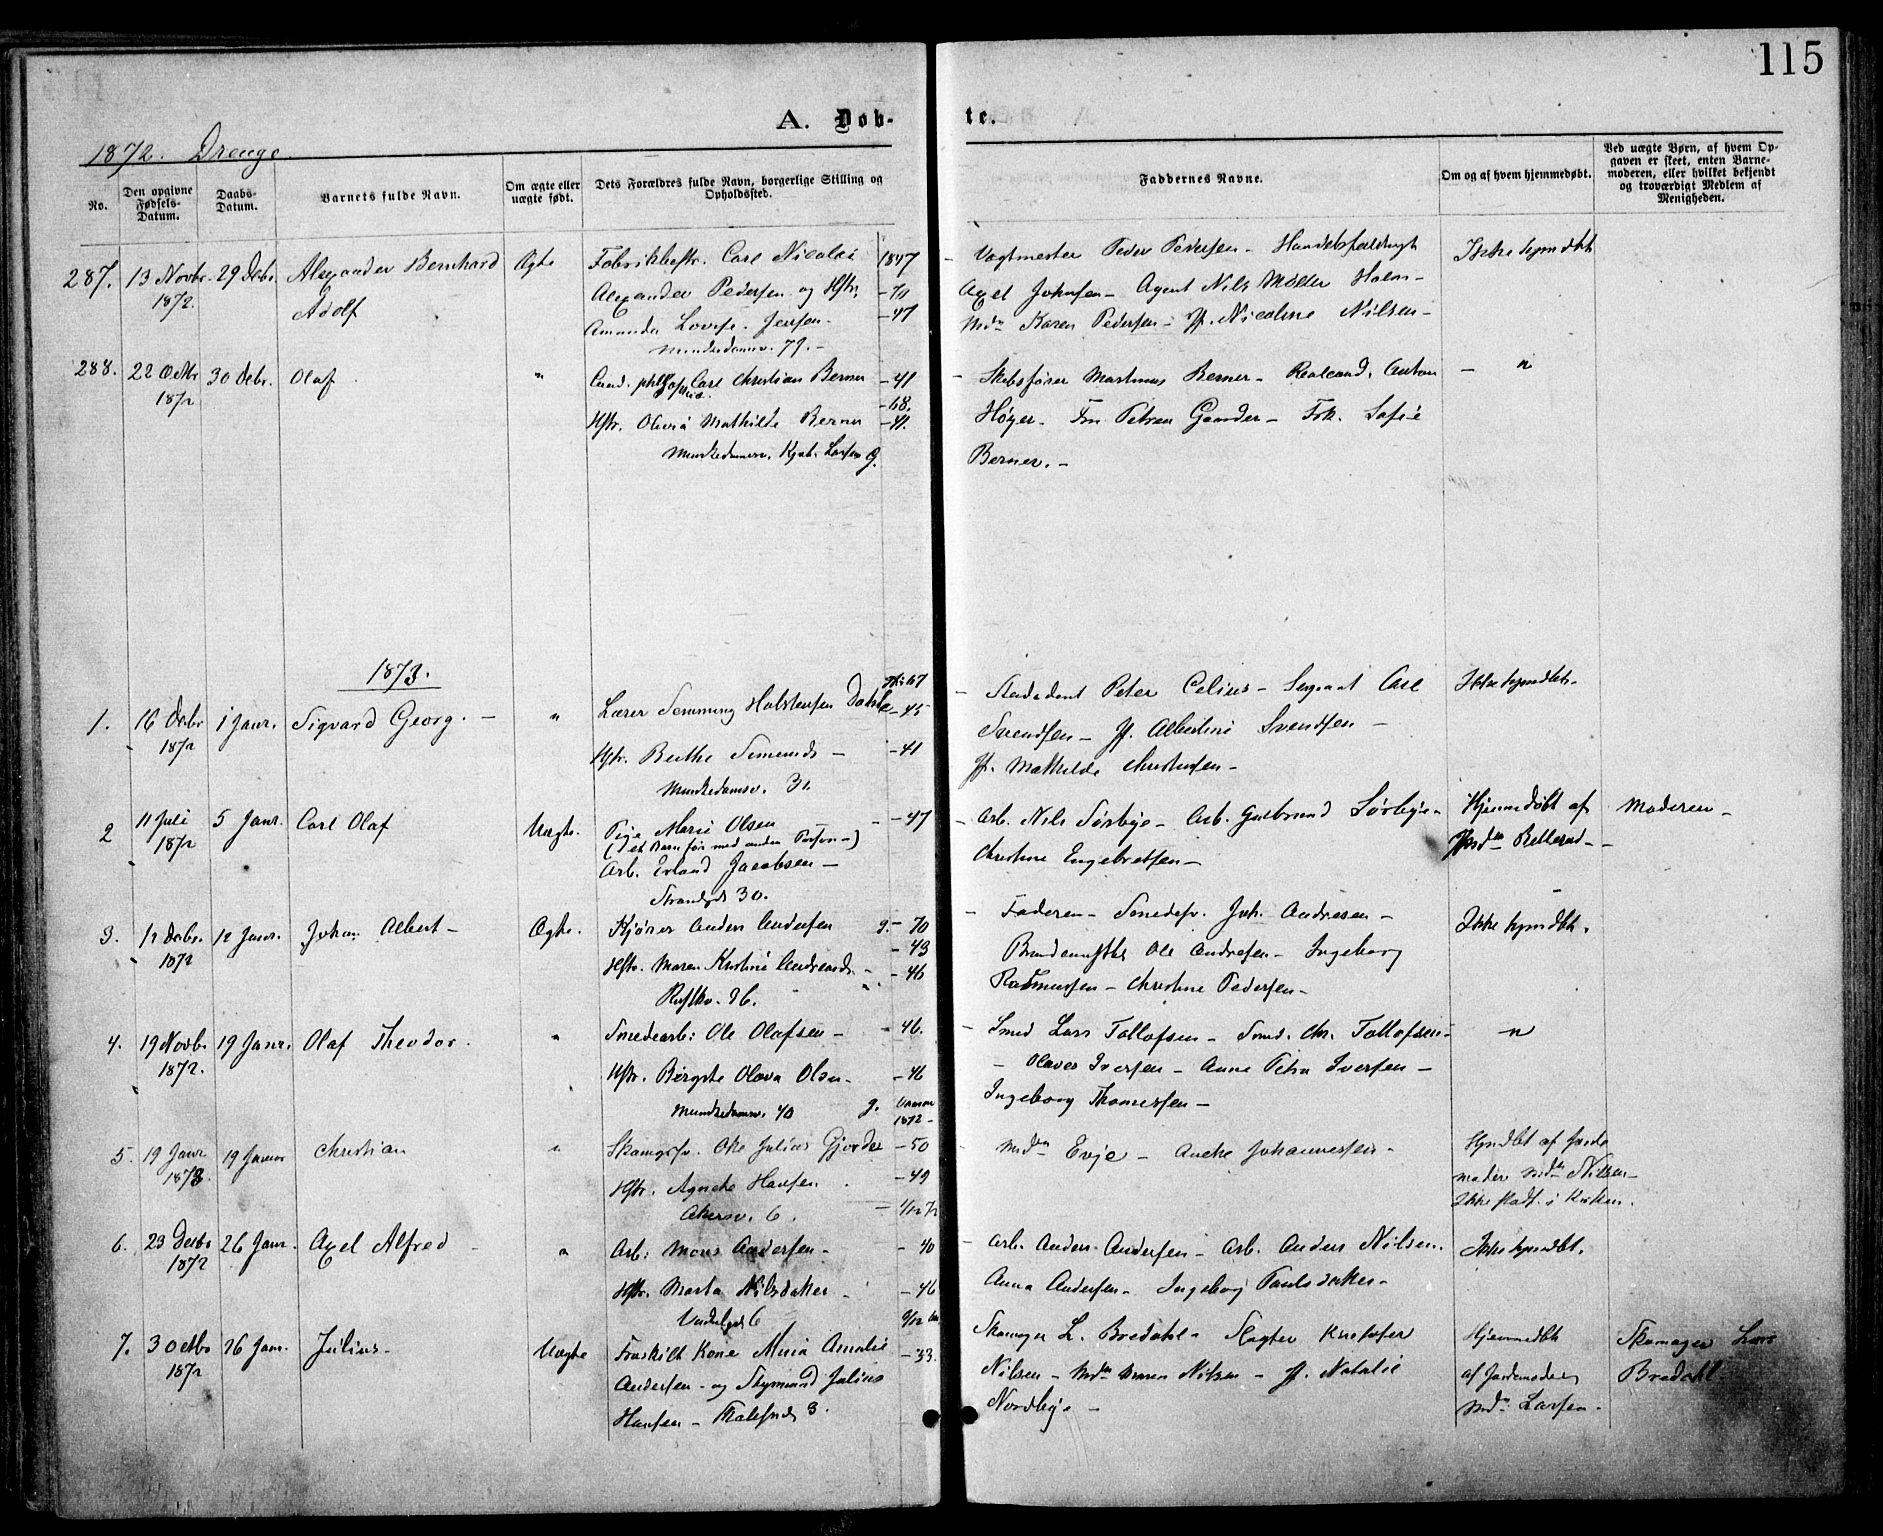 115
A. Døb-
te.
1872. Drenge.
No.
Den opgivne Fødsels-Datum.
Daabs-Datum.
Barnets fulde Navn.
Om ægte eller uægte født.
Dets Forældres fulde Navn, borgerlige Stilling og Opholdssted.
Faddernes Navne.
Om og af hvem hjemmedøbt.
Ved uægte Børn, af hvem Op-
gaven er skeet, enten Barne-
moderen, eller hvilket bekjendt
og troværdigt Medlem af
Menigheden.
287. 13 Novbr. 1872. 29 Debr. Alexander Bernhard Adolf
Ægte
Fabrikbestr. Carl Nicolai 1847
Alexander Pedersen og Hstr. - 70
Amanda Lovise Jensen - - 47
Munkedamsv. 79. -
- Vagtmester Peder Pedersen -
Axel Johnsen - Agent Nils Møller Holm -
Mdm Karen Pedersen - Jf. Nicoline Nilsen -
Ikke hjmdbt
288. 22 Octbr 1872 30 Debr. Olaf
"
Cand. philos. Carl Christian Berner - 41
- 68.
Hstr. Olivia Mathilde Berner - 41.
Munkedamsv. Larsen G.
- Skibsfører Martinus Berner - Realcand. Anton
Høyer - Petrea - Frk. Sofie
Berner. -
- "
1873.
1. 16 Debr 1872 1 Janr. Sigvard Georg. -
"
67
Lærer Semming Halstensen Dahle - 45
Hstr. Berthe Semunds - - 41
Munkedamsv. 31.
- Student Peter Celius - Sergeant Carl
Svendsen - Jf. Albertine Svendsen -
Jf. Mathilde Christensen -
Ikke hjmdbt.
2 11 Juli 1872 5 Janr. Carl Olaf
Uægte.
Pige Marie Olsen - 47
(1 et Barn før med anden Person -)
Arb. Erland Jacobsen -
Strandgd 30.
- Arb. Nils Sørbye - Arb. Gulbrand Sørbye -
Christine Engebretsen -
Hjemmedøbt af
Mdm Bellerud -
Moderen -
3. 12 Debr. 1872 12 Janr. Johan Albert -
Ægte.
Kjører Anders Andersen g. - 70
- 43
Hstr. Maren Kristine Andreasd. - - 46
96.
- Faderen - Smedesv. Joh. Andresen -
Ole Andresen - Ingeborg
Rasmussen - Christine Pedersen -
Ikke hjmdbt.
4. 19 Novbr. 1872. 19 Janr. Olaf Theodor.
"
Smedearb: Ole Olafsen - - 46.
Hstr. Birgite Olava Olsen - - 46
Munkedamsv. 40 g. 1872 -
- Smed Lars Tollofsen - Smed. Chr. Tollofsen -
- Olaves Iversen - Anne Petra Iversen -
Ingeborg Thomesen -
- "
5. 19 Janr 1873 19 Janr Christian
"
Skomgsv. Ole Julius Gjorder - 50
Hstr. Agnete Hansen. - 49
Akersv. 6. - 1/12 72
- Mdm Evje - Anethe Johannessen -
Hjmdbt af Jorde
moder Mdm Nilsen -
Ikke stadf. i Kirken.
6. 23 Debr 1872 26 Janr. Axel Alfred -
"
Arb: Mons Andersen - - 40
Hstr. Marta Nilsdatter - - 46
6
- Arb. Anders Andersen - Arb. Anders Nilsen.
Anna Andersen - Ingeborg Paulsdatter -
Ikke hjmdbt.
7. 3 Octbr 1872 26 Janr. Julius -
Uægte
Fraskilt Kone Maria Amalie - 33.
Andersen - og Skomgsvend Julius
Hansen - 3.
Skomager L. Bredahl - Slagter Kristofer
Nilsen - Mdm Maren Nilsen - Jf. Natalie
Nordbye -
Hjemmedbt
af Jordemoder
Mdm Larsen -
Skomager Lars
Bredahl -